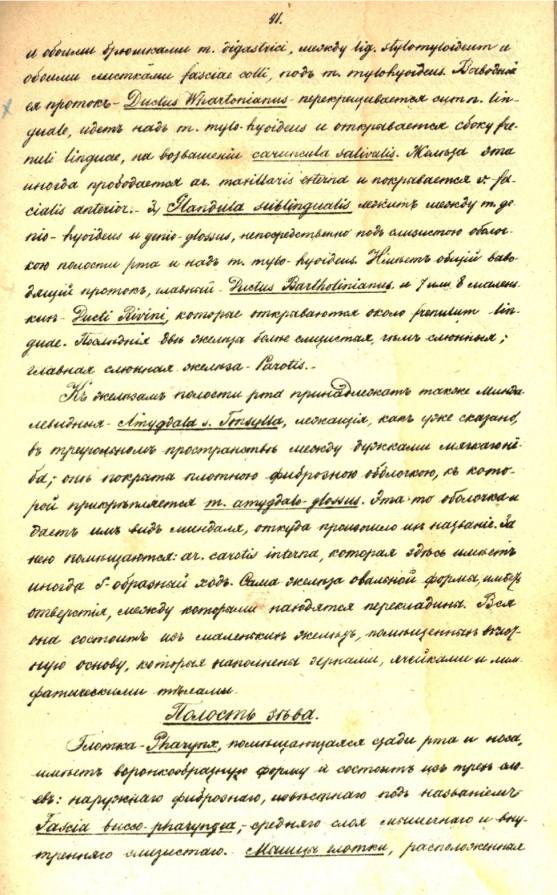 41.
и обоими брюшками m. digastrici, между lig. stylomyloideum и
обоими листками fasciae colli, подъ m. mylohyoideus. Выводной
ея протокъ - Ductus Whartonianus - перекрещивается съ n. lin-
guale, идетъ надъ m. mylo-hyoideus и открывается сбоку fre-
nuli linguae, на возвышеніи caruncula salivalis. Железа эта
иногда прободается ar. maxillaris externa и покрывается v. fa-
cialis anterior. - Glandula sublingualis лежитъ между m. ge-
nio-hyoideus и genio-glossus, непосредственно подъ слизистою оболоч-
кою полости рта и надъ m. mylo-hyoideus. Имѣетъ общій выво-
дящій протокъ, главный - Ductus Bartholinianus, и 7 или 8 малень-
кихъ - Ducti Rivini, которые открываются около frenulum lin-
guae. Послѣднія двѣ железы болѣе слизистыя, чѣмъ слюнныя;
главная слюнная железа - Parotis. -
Къ железамъ полости рта принадлежатъ также Минда-
левидныя - Amygdala s. Tonsylla, лежащія, какъ уже сказано,
въ треугольномъ пространствѣ между дужками мягкаго нё-
ба; онѣ покрыта плотною фиброзною оболочкою, къ кото-
рой прикрѣпляется m. amygdalo-glossus. Эта-то оболочка и
даетъ имъ видъ миндаля, откуда произошло ихъ названіе. За
нею помѣщаются: ar. carotis interna, которая здѣсь имѣетъ
иногда S-образный ходъ. Сама железа овальной формы, имѣетъ
отверстія, между которыми находятся перекладины. Вся
она состоитъ изъ маленькихъ железъ, помѣщенныхъ въ
ную основу, которая наполнена зернами, ячейками и лим-
фатическими тѣлами.
Полость зѣва.
Глотка - Pharynx, помѣщающаяся сзади рта и носа,
имѣетъ воронкообразную форму и состоитъ изъ трехъ сло-
евъ: наружнаго фибрознаго, извѣстнаго подъ названіемъ
Fascia bucco-pharyngea, - средняго слоя мышечнаго и вну-
тренняго слизистаго. Мышцы глотки, расположенныя